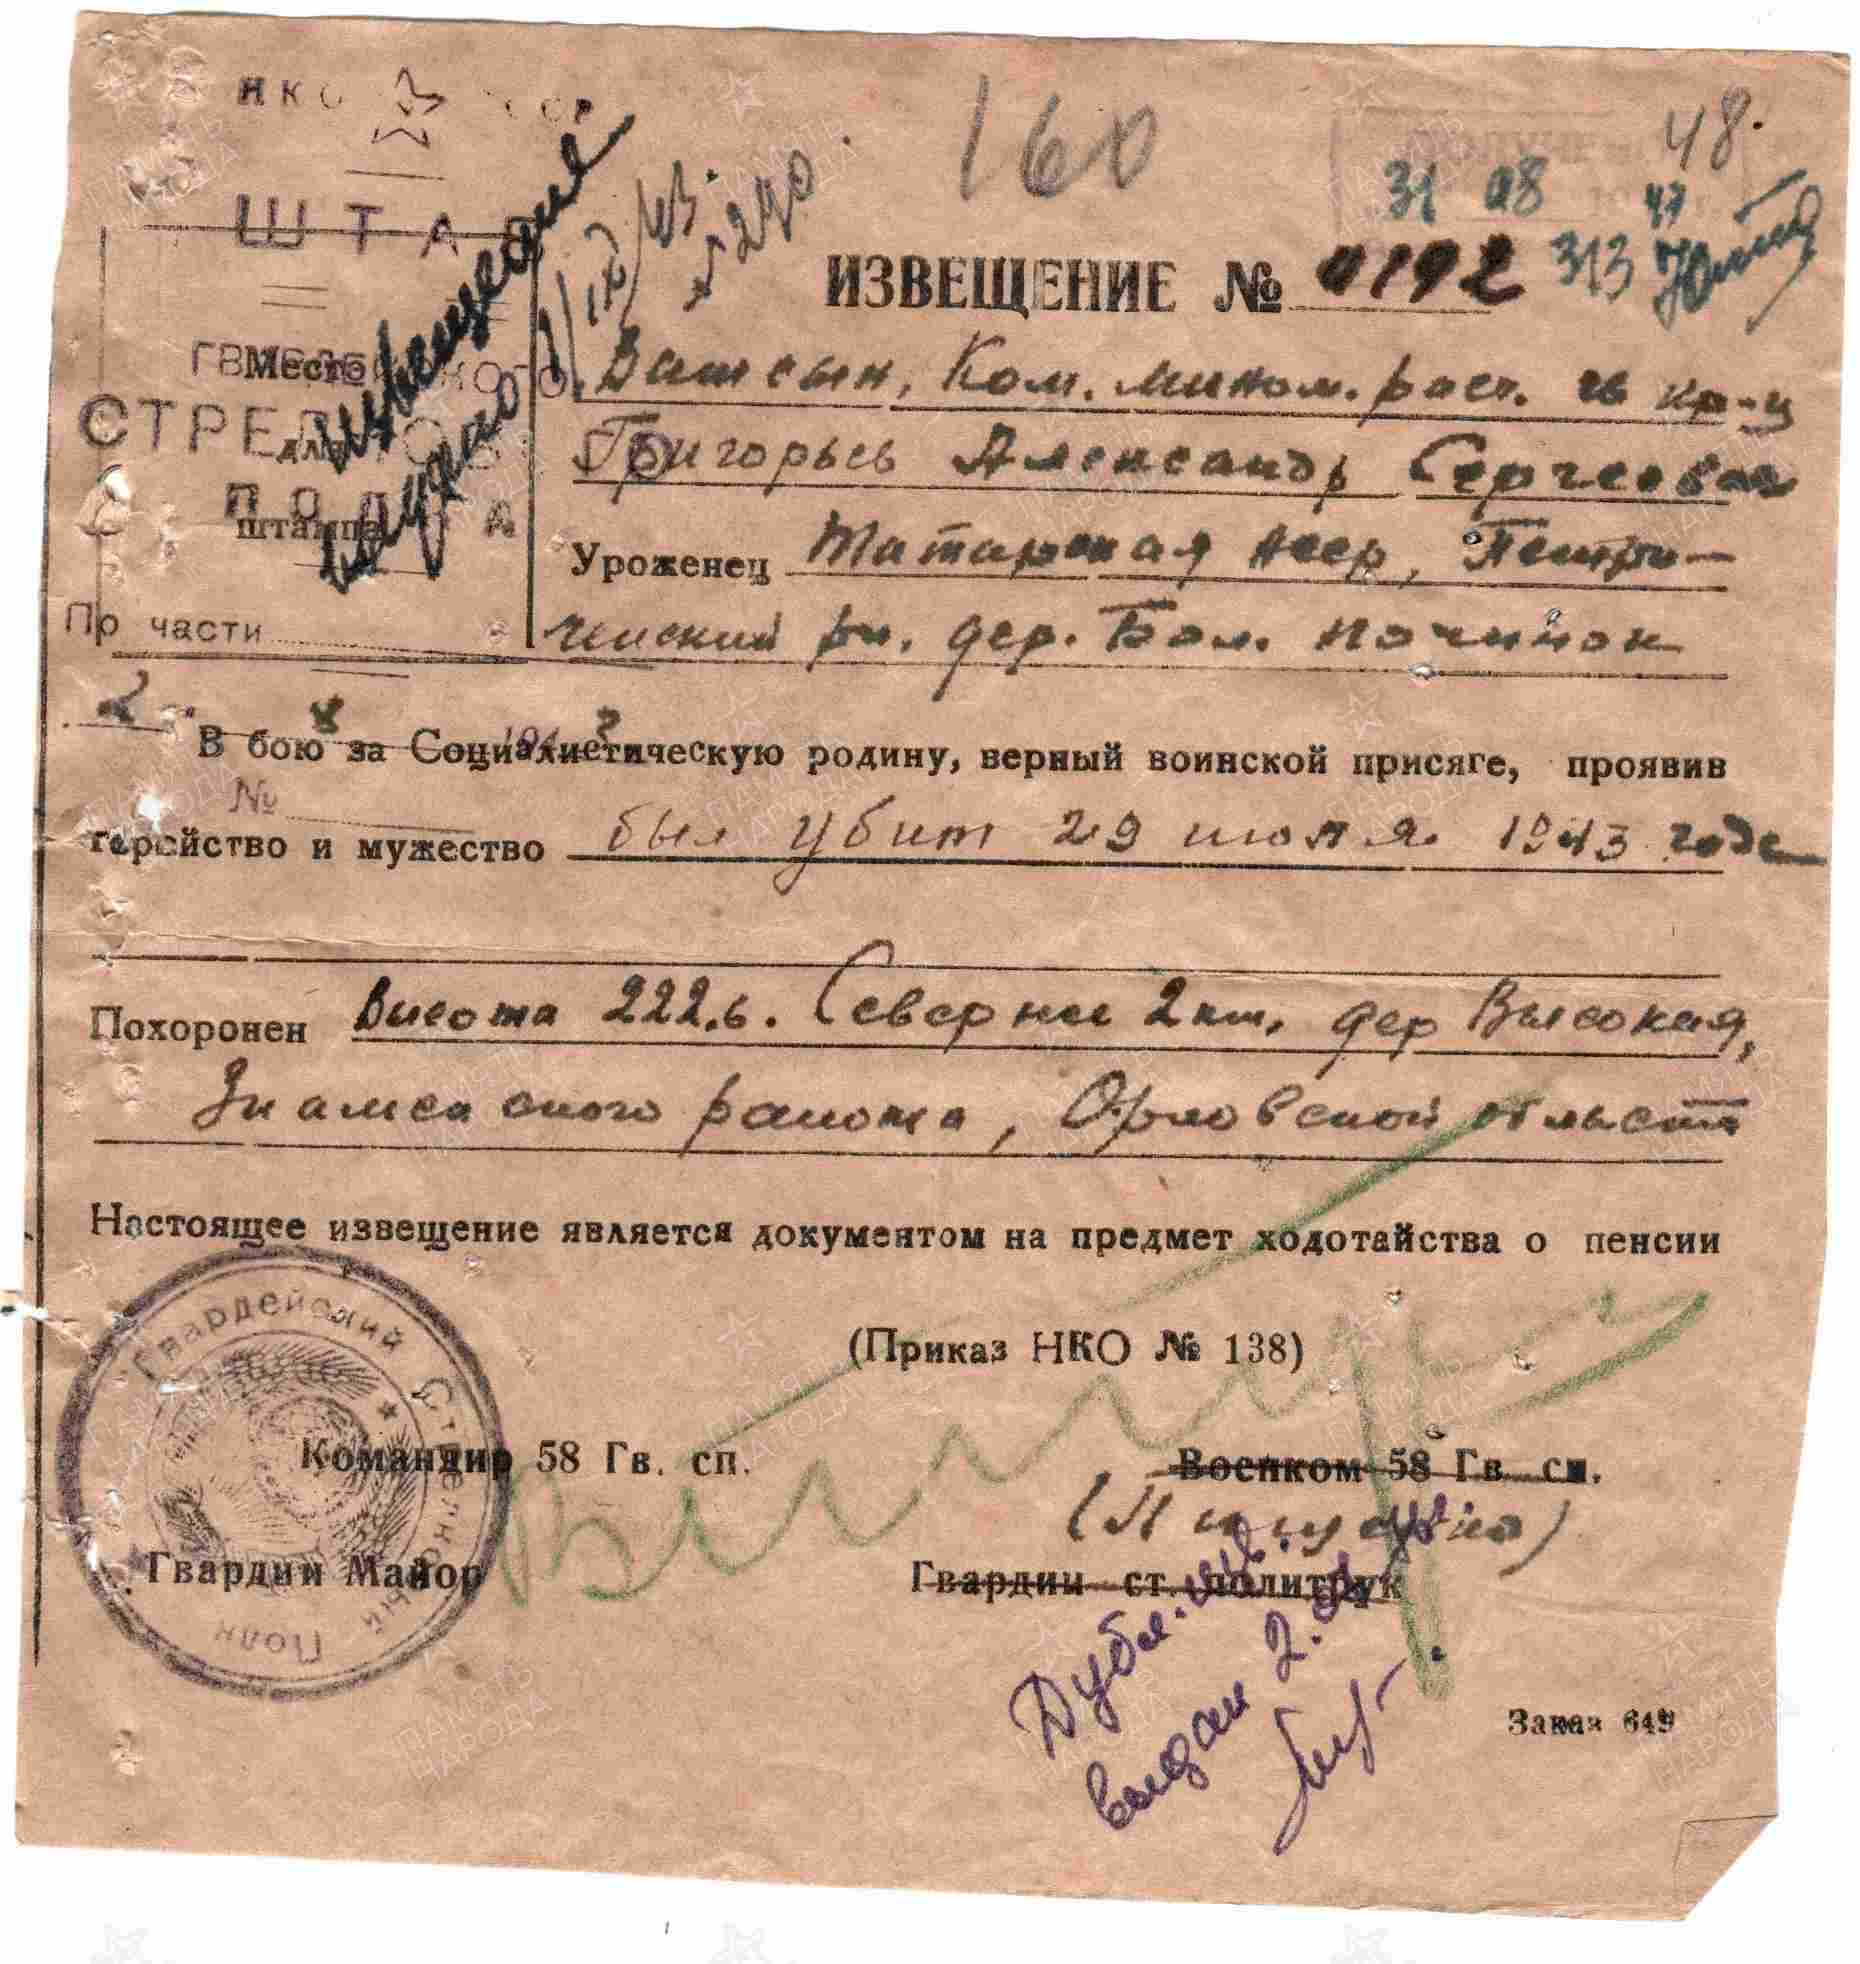 НКО СССР
ШТАБ
ГВАРДЕЙСКОГО
СТРЕЛКОВОГО
ПОЛКА
Место
для
штампа
По части
2 8 1943
№
160
48.
31 08 47
313
270
ИЗВЕЩЕНИЕ № 0192
Ваш сын, Ком. мином. расч. гв кр-ц
Григорьев Александр Сергеевич
Уроженец Татарская Асср, Пестре-
ченский рн. дер. Бол. Починок
В бою за Социалистическую родину, верный воинской присяге, проявив
геройство и мужество был убит 29 июля 1943 годе
Похоронен Высота 222,6. Севернее 2 км, дер Высокая,
Знаменского района, Орловской области
Настоящее извещение является документом на предмет ходотайства о пенсии
(Приказ НКО № 138)
Командир 58 Гв. сп.
Военком 58 Гв. сп.
Гвардии Майор
Гвардии ст. политрук
Гвардейский Стрелковый Полк
Дубл.
выдан 2.
Заказ 649
ПАМЯТЬ НАРОДА